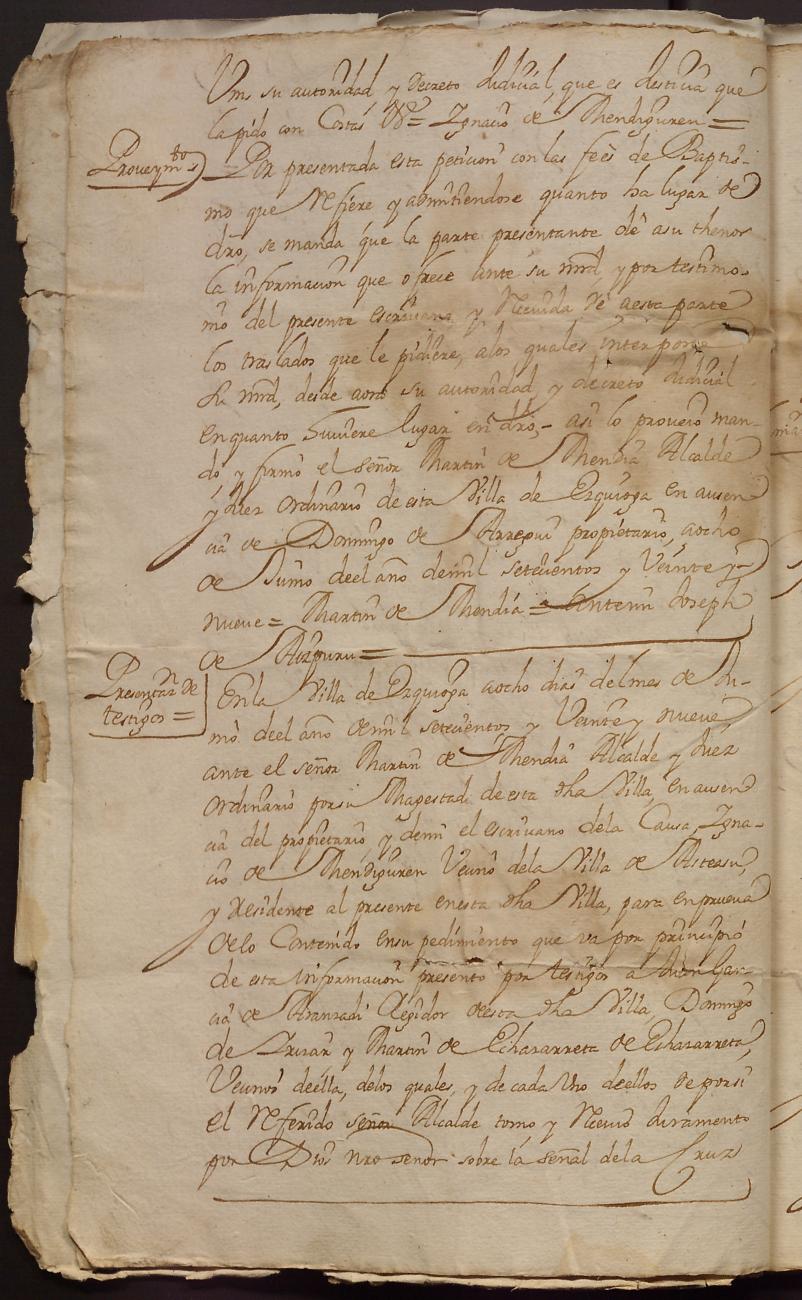 Vm. su autoridad, y decreto Judicial, que es Justicia que
la pido con Costas Vª = Ygnacio de Mhendiguren =
Proveym.to
Por presentada esta peticion con las fees de Baptis-
mo que Refiere y admitiendose quanto ha lugar de
dro, se manda que la parte presentante dé asu thenor
la informacion que ofrece ante su mrd, y por testimo-
nio del presente escrivano y Recivida dé aesta parte
los traslados que le pidiere, alos quales interpone
su mrd, desde aora su autoridad y decreto Judicial
en quanto huviere lugar en dro, - asi lo proveio man-
dó y firmó el señor Martin de Mhendia Alcalde
y Juez ordinario de esta Villa de Ezquioga en ausen
cia de Domingo de Arregui propietario, aocho
de Junio deel año demil setecientos y Veinte y
nueve = Martin de Mhendia = Antemi Joseph
de Aizpuru =
Presentan de
testigos =
En la Villa de Ezquioga aocho dias del mes de Ju-
nio deel año demil setecientos y Veinte y nueve,
ante el señor Martin de Mhendia Alcalde y Juez
ordinario porsu Magestad de esta dha Villa, en ausen
cia del propietario, y demi el escrivano dela Causa, Ygna-
cio de Mhendiguren Vecino dela Villa de Asteasu,
y Residente al presente enesta dha Villa, para en prueva
delo Contenido ensu pedimiento que va por principio
de esta informacion presento por testigos a Juan Gar-
cia de Aranzadi Regidor deesta dha Villa, Domingo
de Irizar y Martin de Echazarreta de Echazarreta,
Vecinos deella, delos quales, y de cada Vno deellos de porsi
el Referido señor Alcalde tomo y Recivio Juramento
por Dios nro señor sobre la señal dela Cruz